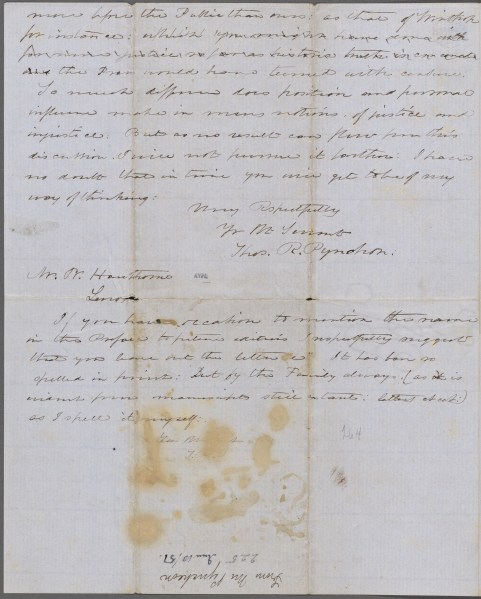 more before the Public than ours, as that of Winthrop
for instance: which you would not have done with
as historic truth is concerned
and the Press would have teemed with censure.
So much difference does position and personal
influence make in mens notions of justice and
injustice. But as no result can flow from this
discussion I will not pursue it further: I have
no doubt that in time you will get to be of my
way of thinking:
Very Respectfully
Yr Ob Servant
Thos. R. Pynchon.
Mr. N. Hawthorne
Lenox
If you have occation to mention the name
in the Preface to future editions I respectfully suggest
that you leave out the letter e. It has been so
spelled in print: but by the Family always (as it is
evident from manuscripts still extant: letters &c &c)
as I spell it myself:
164
225
From Mr Pyncheon